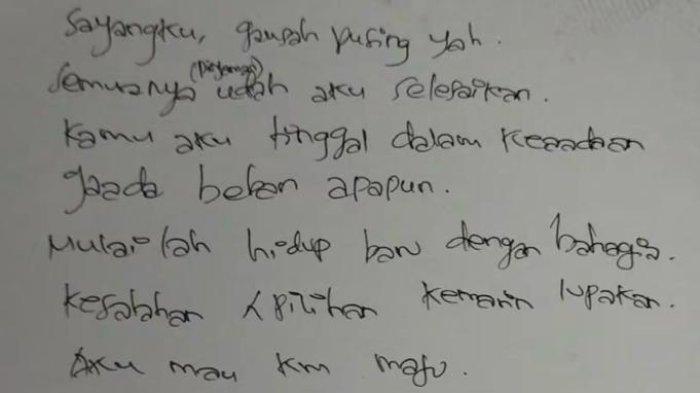 Sayangku, gausah pusing yah.
Semuanya (pinjaman) udah aku selesaikan.
Kamu aku tinggal dalam keadaan
gaada beban apapun.
Mulailah hidup baru dengan bahagia.
Kesalahan & pilihan kemarin lupakan.
Aku mau km maju.